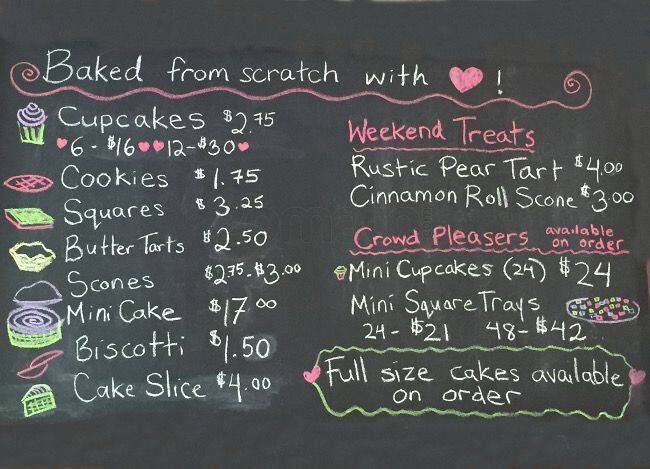 Baked from scratch with !
Cupcakes $2.75
6 - $16 12 - $30
Cookies $1.75
Squares $3.25
Butter Tarts $2.50
Scones $2.75 - $3.00
Mini Cake $17.00
Biscotti $1.50
Cake Slice $4.00
Weekend Treats
Rustic Pear Tart $4.00
Cinnamon Roll Scone $3.00
Crowd Pleasers available on order
Mini Cupcakes (24) $24
Mini Square Trays
24 - $21 48 - $42
Full size cakes available
on order